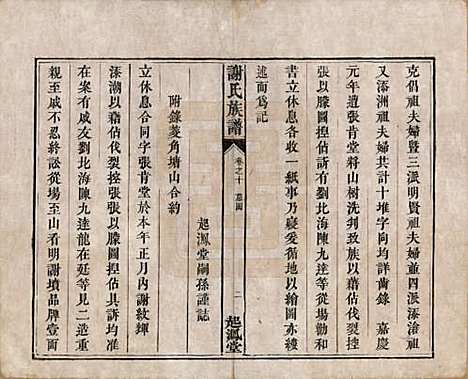 克侣祖夫婦暨三派明賢夫婦並四派添淦祖
又添洲祖夫婦共計十堆字向均詳齒錄　嘉慶
元年遭張肯堂將山樹洗劈致族以藉佔伐裂控
張以朦圖揑佔訴有劉北海陳九逵等從場勸和
書立休息各收一紙事乃寢爰循地以繪圖亦綾
述而爲記
起鳳堂嗣孫謹誌
附錄菱角塘山合約
謝氏族譜
卷之十
墓圖
二
起鳳堂
立休息合同字張肯堂於本年正月內謝紋輝
添潮以藉佔伐裂控張張以朦圖揑佔具訴均准
在案有戚友劉北海陳九逵龍在廷等見二造重
親至戚不忍終訟從場至山看明謝墳品牌壹面